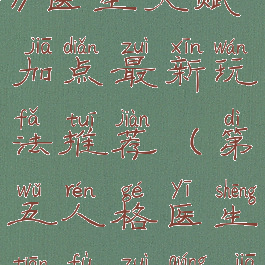 医生天赋
jiā diǎn zuì xīn wán
加点最新玩
fǎ tuī jiàn dì
法推荐（第
wǔ rén gé yī shēng
五人格医生